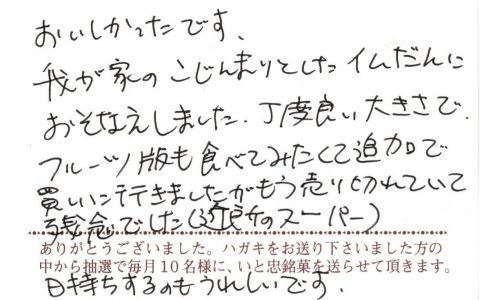 おいしかったです、
我が家のこじんまりとした仏だんに
おそなえしました、丁度良い大きさで、
フルーツ版も食べてみたくて追加で
買いに行きましたがもう売り切れていて
残念でした(近所のスーパー)
ありがとうございました。ハガキをお送り下さいました方の
中から抽選で毎月10名様に、いと忠銘菓を送らせて頂きます。
日持ちするのもうれしいです。